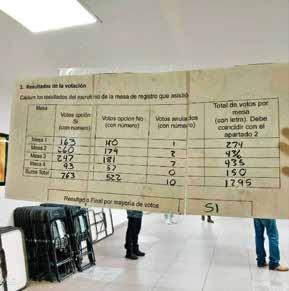 3. Resultados de la votación
Capture los resultados del escrutinio de la mesa de registro que asistió
Mesa
Votos opción Sí (con número)
Votos opción No (con número)
Votos anulados (con número)
Total de votos por mesa (con letra). Debe coincidir con el apartado 2
Mesa 1 163 110 1 274
Mesa 2 260 174 2 436
Mesa 3 247 181 7 435
Mesa 4 93 57 0 150
Suma Total 763 522 10 1295
Resultado Final por mayoría de votos SI